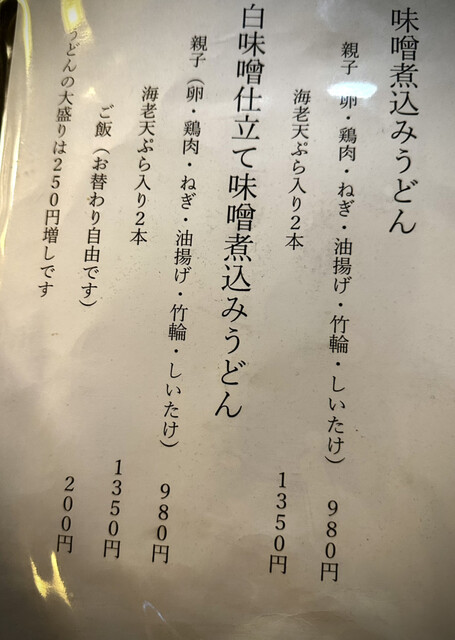 味噌煮込みうどん
親子(卵・鶏肉・ねぎ・油揚げ・竹輪・しいたけ) 980円
海老天ぷら入り2本 1350円
白味噌仕立て味噌煮込みうどん
親子(卵・鶏肉・ねぎ・油揚げ・竹輪・しいたけ) 980円
海老天ぷら入り2本 1350円
ご飯(お替わり自由です) 200円
うどんの大盛りは250円増しです